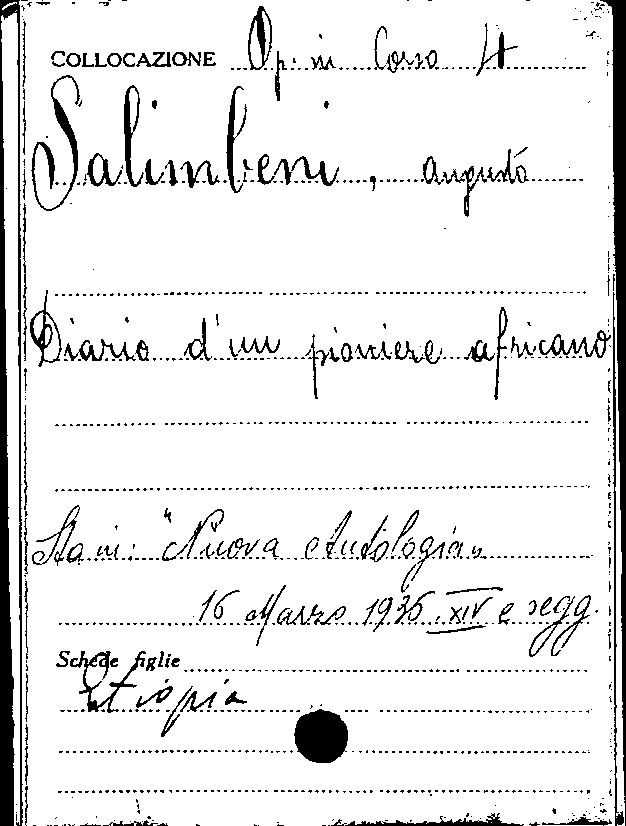 COLLOCAZIONE Op. in Corso 4
Salimbeni, Augusto
Diario d'un pioniere africano
Sta in: "Nuova Antologia"
16 Marzo 1936. XIV e segg.
Schede figlie
Etiopia